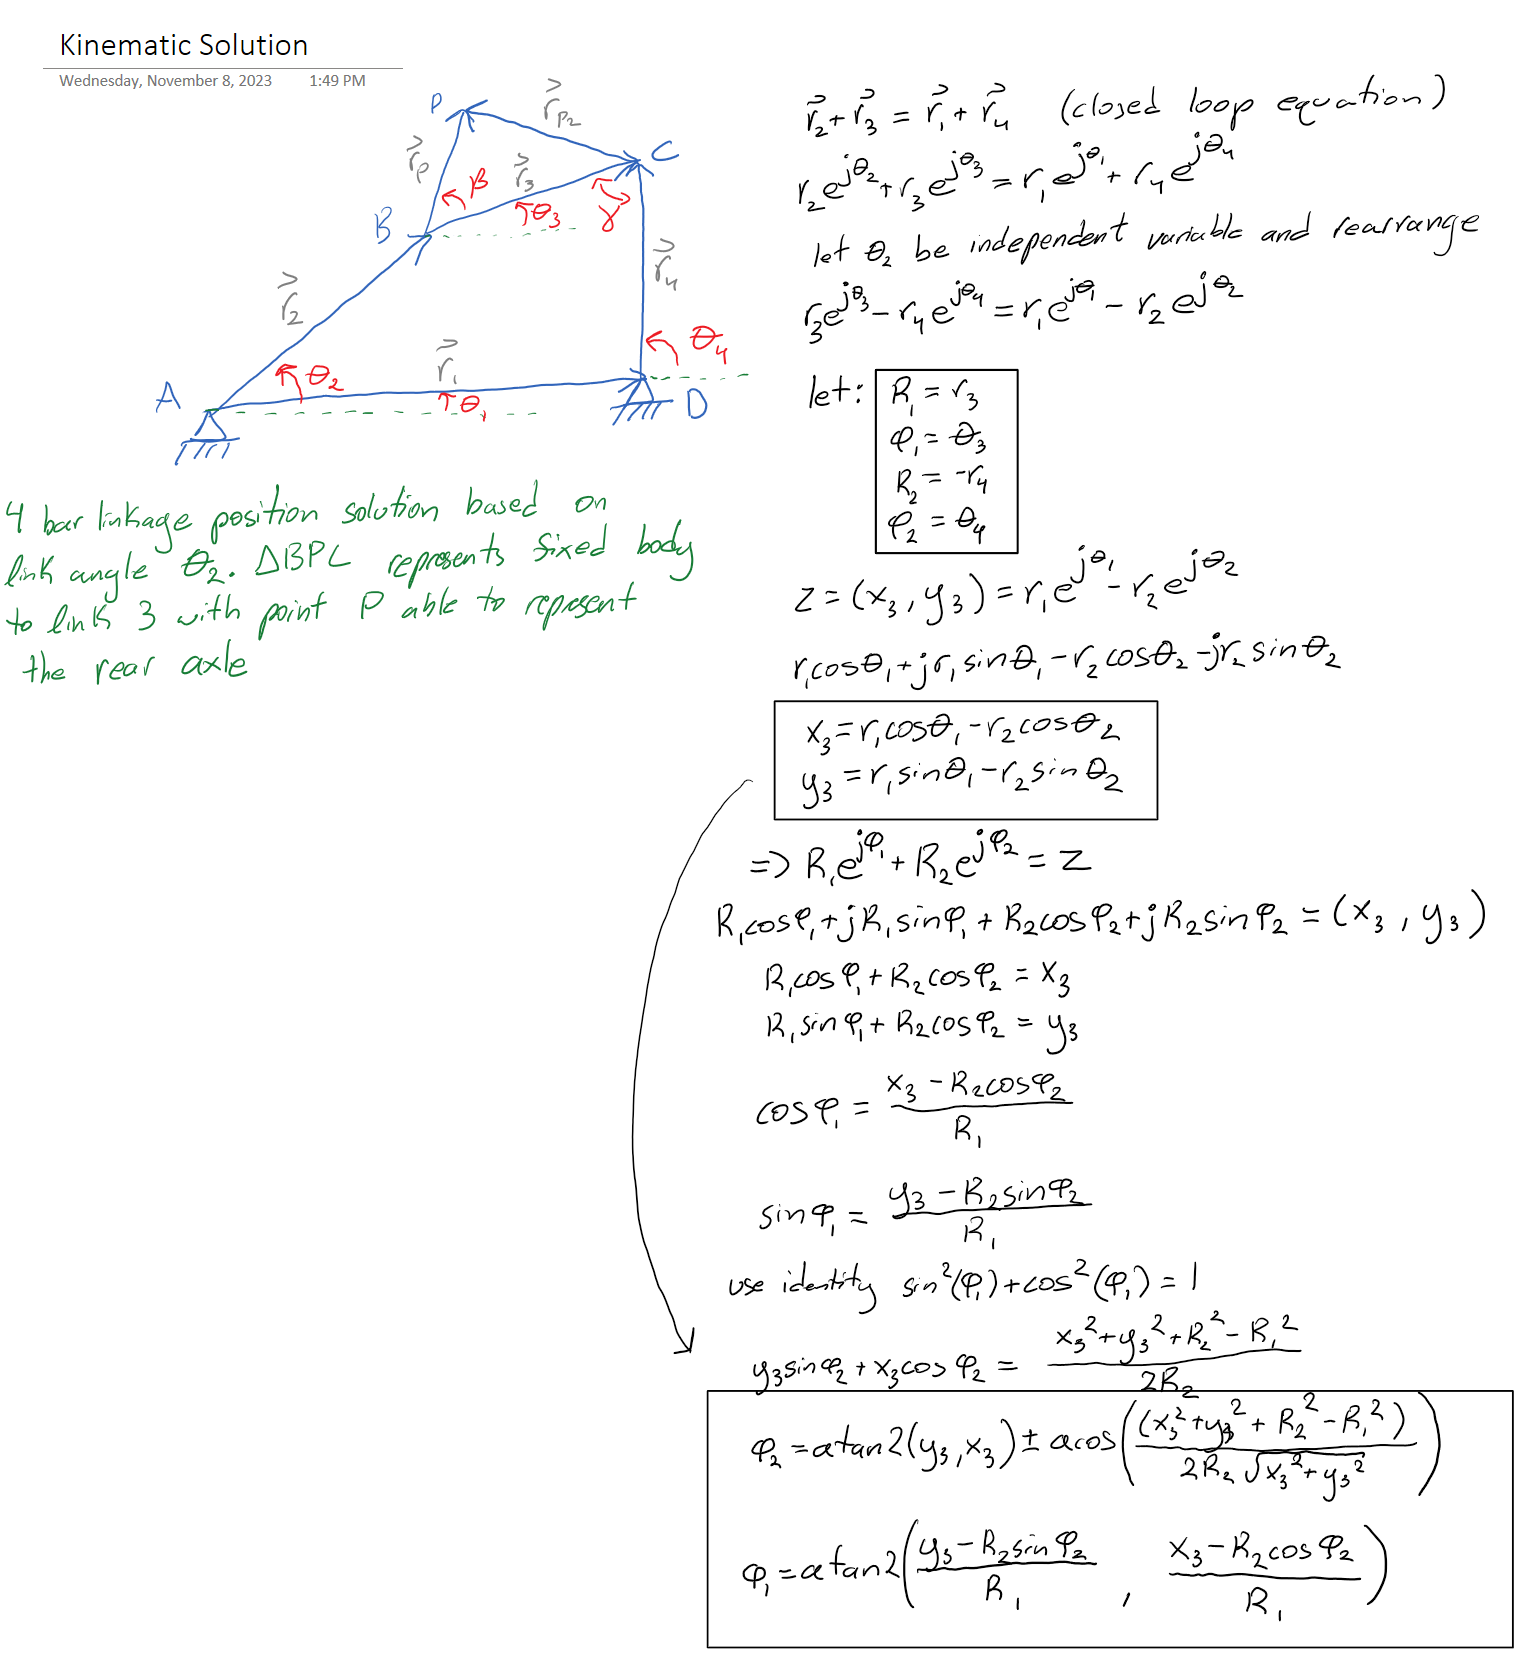 Kinematic Solution
Wednesday, November 8, 2023 1:49 PM
P
r⃗p2
C
r⃗p
β
r⃗3
θ3
γ
B
r⃗2
r⃗4
θ4
r⃗1
θ2
θ1
A
D
4 bar linkage position solution based on
link angle θ2. ΔBPC represents fixed body
to link 3 with point P able to represent
the rear axle
r⃗2 + r⃗3 = r⃗1 + r⃗4 (closed loop equation)
r2e^jθ2 + r3e^jθ3 = r1e^jθ1 + r4e^jθ4
let θ2 be independent variable and rearrange
r3e^jθ3 - r4e^jθ4 = r1e^jθ1 - r2e^jθ2
let:
R1 = r3
φ1 = θ3
R2 = -r4
φ2 = θ4
z = (x3, y3) = r1e^jθ1 - r2e^jθ2
r1cosθ1 + jr1sinθ1 - r2cosθ2 - jr2sinθ2
x3 = r1cosθ1 - r2cosθ2
y3 = r1sinθ1 - r2sinθ2
=> R1e^jφ1 + R2e^jφ2 = z
R1cosφ1 + jR1sinφ1 + R2cosφ2 + jR2sinφ2 = (x3, y3)
R1cosφ1 + R2cosφ2 = x3
R1sinφ1 + R2cosφ2 = y3
cosφ1 = (x3 - R2cosφ2) / R1
sinφ1 = (y3 - R2sinφ2) / R1
use identity sin²(φ1) + cos²(φ1) = 1
y3sinφ2 + x3cosφ2 = (x3² + y3² + R2² - R1²) / 2R2
φ2 = atan2(y3, x3) ± acos((x3² + y3² + R2² - R1²) / 2R2√(x3² + y3²))
φ1 = atan2((y3 - R2sinφ2) / R1, (x3 - R2cosφ2) / R1)